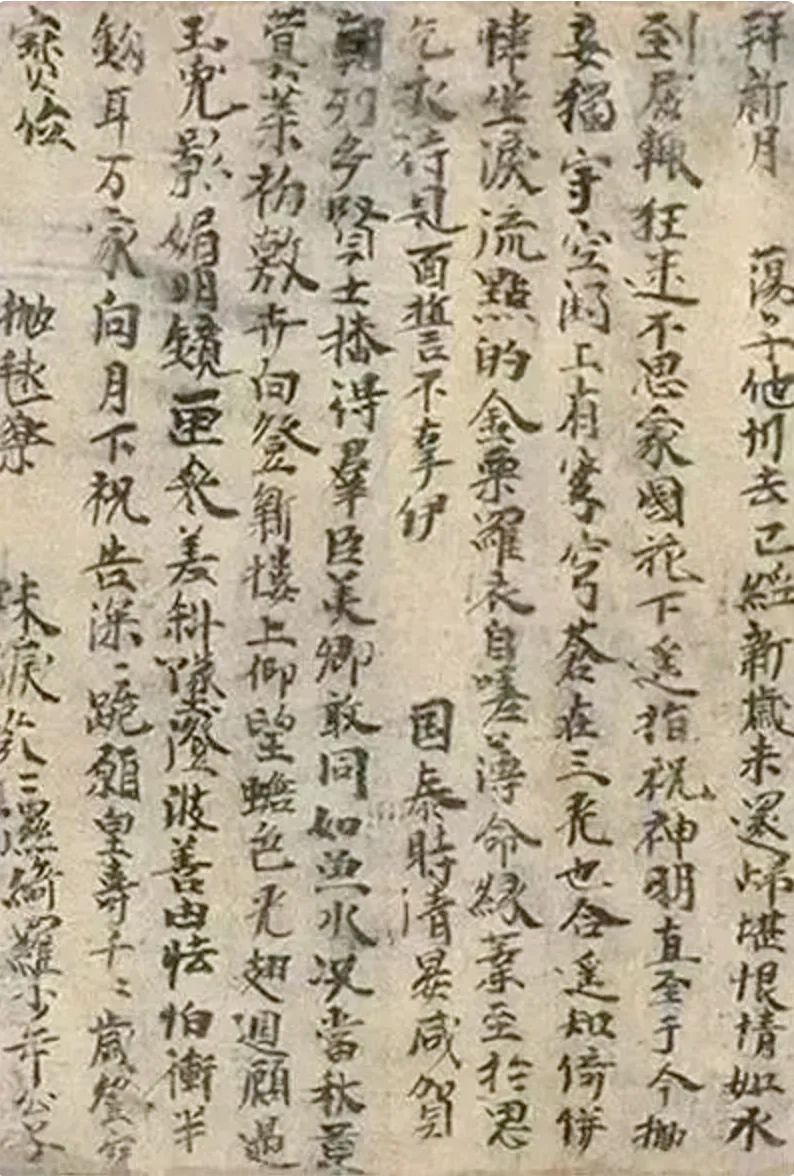 拜新月 蕩子他州去已經新歲未還歸堪恨情如水
到居輒狂迷不思家國花下遙指祝神明直至于今抛
妾獨守空閨上有穹蒼在三光也合遙知倚屏
幃坐淚流點的金粟羅衣自嗟薄命緣業至於思
乞求待見面誓不辜伊 国泰時清晏咸賀
朝列多賢士播得羣臣美卿敢同如魚水況當秋景
蓂葉初敷卉向登新樓上仰望蟾色光翅迴顧遇
玉兔影媚明鏡匣參差斜墜澄波善由怯怕衝半
鈎耳万家向月下祝告深〻跪願皇壽千〻歲登
寶位 抛毬樂 珠淚〻羅綺少年公子